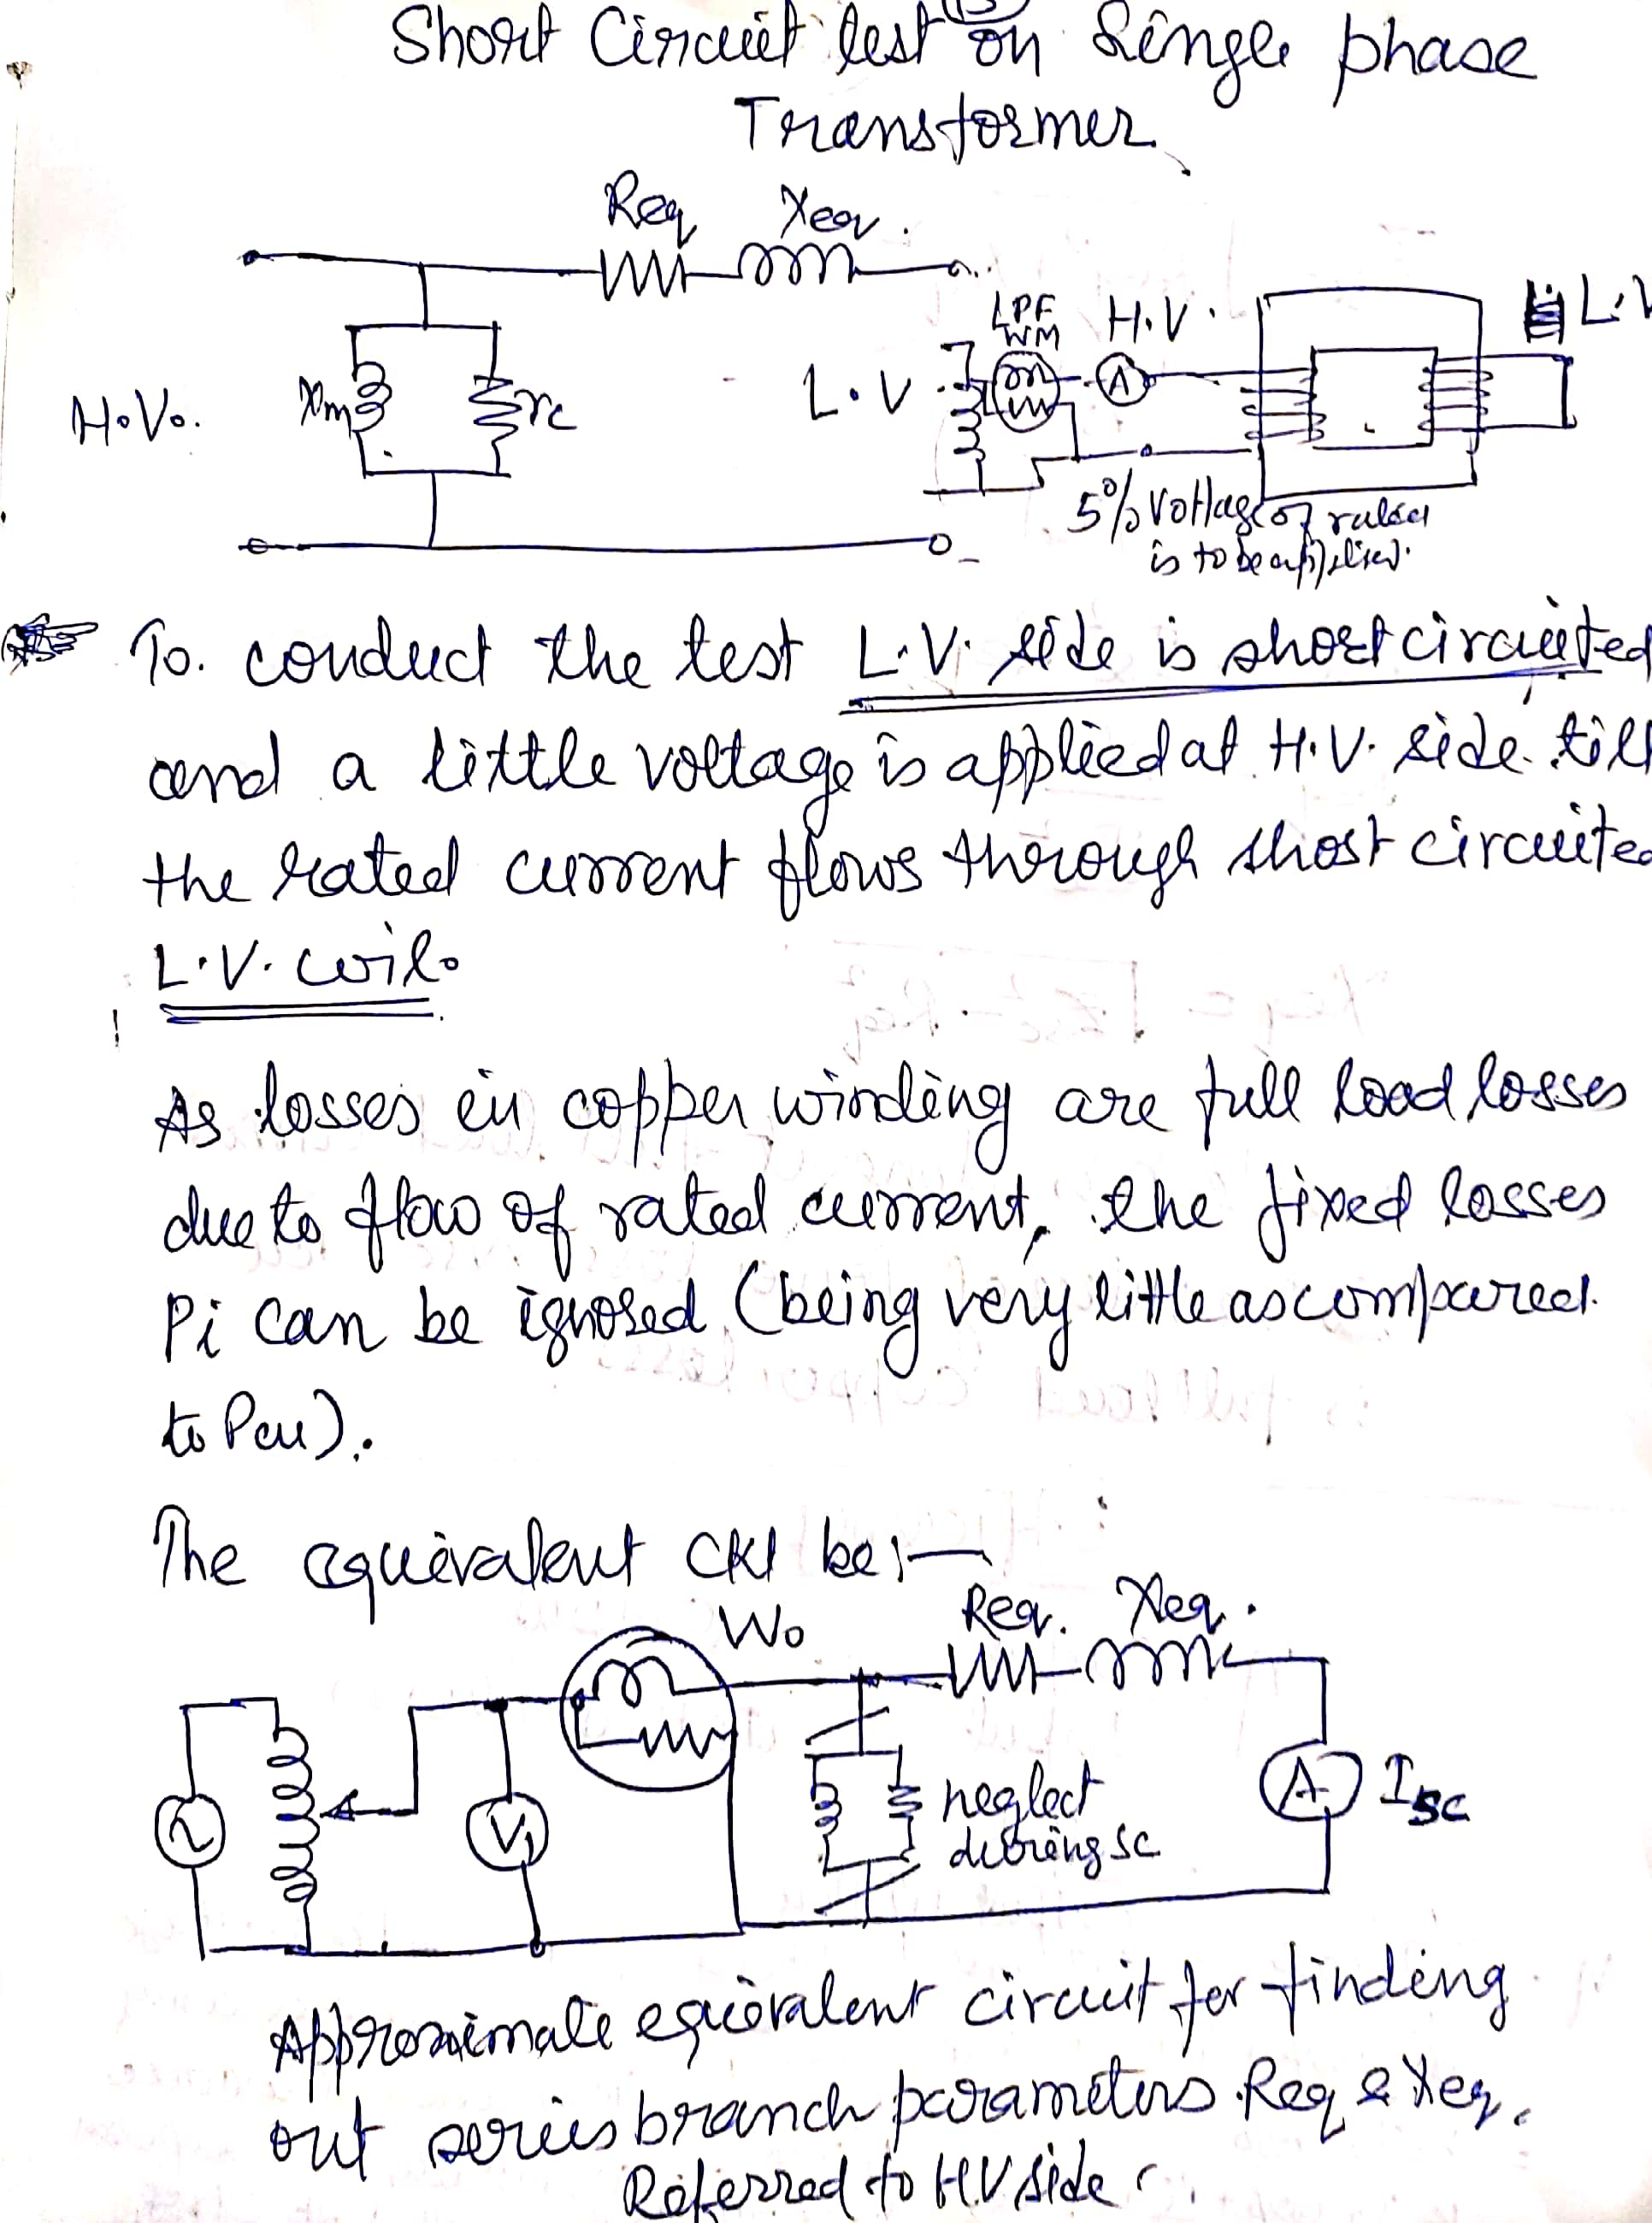 Short Circuit test on Single phase
Transformer
Req Xeq.
LPF
WM
H.V.
L.V
H.V.
Xm
rc
L.V.
A
5% Voltage of rated
is to be applied.
To. conduct the test L.V. side is short circuited
and a little voltage is applied at H.V. side till
the rated current flows through short circuited
L.V. coil.
As losses in copper winding are full load losses
due to flow of rated current, the fixed losses
Pi can be ignored (being very little as compared
to Pcu).
The equivalent ckt be:—
Wo
Req. Xeq.
V1
neglect
during SC
A
ISC
Approximate equivalent circuit for finding
out series branch parameters Req & Xeq.
Referred to H.V side.